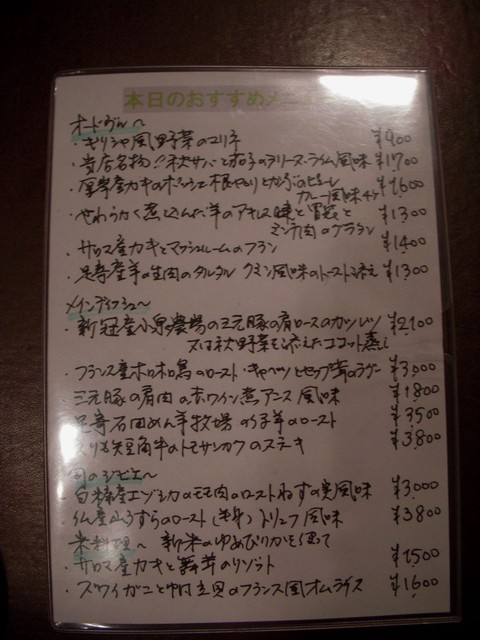 本日のおすすめメニュー
オードヴル〜
・ギリシャ風野菜のマリネ ¥900
・当店名物!!秋サバと茄子のテリーヌ・ライム風味 ¥1700
・厚岸産カキのポッシェ 根セロリとかぶのピューレ カレー風味 ¥1600
・やわらかく煮込んだ羊のアキレス腱と胃袋と ミンチ肉のグラタン ¥1300
・サロマ産カキとマッシュルームのフラン ¥1400
・足寄産羊の生肉のタルタル クミン風味のトースト添え ¥1300
メインディッシュ〜
・新冠産小泉農場の三元豚の肩ロースのカツレツ ¥2,100
又は秋野菜を添えたココット蒸し
・フランス産ホロホロ鳥のロースト・キャベツとセップ茸のラグー ¥3,000
・三元豚の肩肉の赤ワイン煮アニス風味 ¥1800
・足寄石田めん羊牧場の仔羊のロースト ¥3,500
・えりも短角牛のトモサンカクのステーキ ¥3,800
旬のジビエ〜
・白糠産エゾシカのモモ肉のロースト ねずの実風味 ¥3,000
・仏産山うずらのロースト(半身)トリュフ風味 ¥3800
米料理〜 新米のゆめぴりかを使って
・サロマ産カキと舞茸のリゾット ¥1,500
・ズワイガニと帆立貝のフランス風オムライス ¥1,600